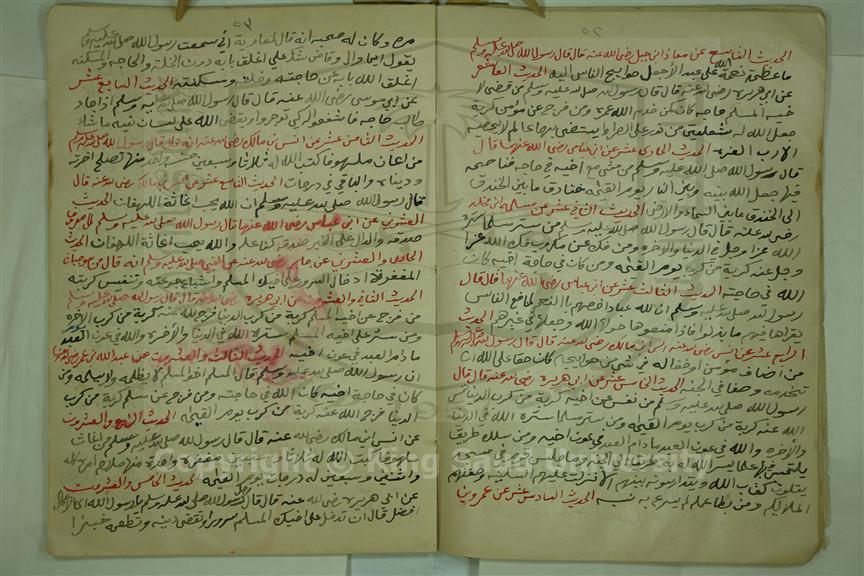 ٥٢
الحديث التاسع عن معاذ ابن جبل رضي الله عنه قال قال رسول الله صلى الله عليه وسلم
ما عظمت نعمة الله على عبد الا جعل حوايج الناس اليه الحديث العاشر
عن ابي هريرة رضي الله عنه قال قال رسول الله صلى الله عليه وسلم من قضى لا
خيه المسلم حاجة كان كمن خدم الله عمره ومن فرج عن مؤمن كربة
جعل الله له شعلتين من نور على الصراط يستضيء بهما عالم لا يحصيه
الا رب العزة الحديث الحادي عشر عن ابن عباس رضي الله عنهما قال
قال رسول الله صلى الله عليه وسلم من مشى مع اخيه في حاجة فناصحه
فيها جعل الله بينه وبين النار يوم القيمة خنادق ما بين الخندق
الى الخندق ما بين السماء والارض الحديث الثاني عشر عن مسلمة ابن مخلد
رضي الله عنه قال قال رسول الله صلى الله عليه وسلم من ستر مسلما ستره
الله عز وجل في الدنيا والاخرة ومن فك عن مكروب فك الله عز
وجل عنه كربة من كرب يوم القيمة ومن كان في حاجة اخيه كان
الله في حاجته الحديث الثالث عشر عن ابن عباس رضي الله عنهما قال قال
رسول الله صلى الله عليه وسلم ان لله عبادا خصهم بالنعم لمنافع الناس
يقرها فيهم ما بذلوا فاذا منعوها حولها الله وجعلها في غيرهم الحديث
الرابع عشر عن انس ابن مالك رضي الله عنه قال قال رسول الله صلى الله عليه وسلم
من اضاف مؤمن او خفا له في شيء من حوايجه كان حقا على الله ان
يخدمه وصفا في الجنة الحديث الخامس عشر عن ابي هريرة رضي الله عنه قال قال
رسول الله صلى الله عليه وسلم من نفس عن اخيه كربة من كرب الدنيا نفس
الله عنه كربة من كرب يوم القيمة ومن ستر مسلما ستره الله في الدنيا
والاخرة والله في عون العبد ما دام العبد في عون اخيه ومن سلك طريق
يلتمس فيها علما يسر الله له به طريقا الى الجنة وما جلس قوم في مسجد
يتلون كتاب الله ويتدارسونه بينهم الا نزلت عليهم السكينة وحفتهم
الملايكة ومن بطأ عمله لم يسرع به نسبه الحديث السادس عشر عن عمرو بن
٥٣
مره وكان له صحبة انه قال لمعاوية اني سمعت رسول الله صلى الله عليه وسلم
يقول ايما وال وقاض اغلق بابه دون الخلة والحاجة والمسكنة
اغلق الله بابه عن حاجته وخلته ومسكنته الحديث السابع عشر
عن ابي موسى رضي الله عنه قال قال رسول الله صلى الله عليه وسلم اذا جاء
طالب حاجة فاشفعوا لكي توجروا ويقضي الله على لسان نبيه ما شاء
الحديث الثامن عشر عن انس بن مالك رضي الله عنه انه قال قال رسول الله صلى الله عليه وسلم
من اعان ملهوفا كتب الله له ثلاثا وسبعين حسنة واحدة منها تصلح اخرته
ودنياه والباقي في درجات الحديث التاسع عشر عن انس بن مالك رضي الله عنه قال
قال رسول الله صلى الله عليه وسلم ان الله يحب اغاثة اللهفان الحديث
العشرين عن ابن عباس رضي الله عنهما قال رسول الله صلى الله عليه وسلم كل معروف
صدقة والدال على الخير كفاعله والله يحب اغاثة اللهفان الحديث
الحادي والعشرين عن جابر رضي الله عنه عن النبي صلى الله عليه وسلم انه قال من موجبات
المغفرة ادخال السرور على اخيك المسلم واشباع جوعته وتنفيس كربته
الحديث الثاني والعشرون عن ابي هريرة رضي الله عنه قال قال رسول الله صلى الله عليه وسلم
من فرج عن اخيه المسلم كربة من كرب الدنيا فرج الله عنه كربة من كرب يوم القيمة
ومن ستر على اخيه المسلم ستره الله في الدنيا والاخرة والله في عون العبد
ما دام العبد في عون اخيه الحديث الثالث والعشرون عن عبد الله بن عمر رضي الله عنهما
ان رسول الله صلى الله عليه وسلم قال المسلم اخو المسلم لا يظلمه ولا يسلمه ومن
كان في حاجة اخيه كان الله في حاجته ومن فرج عن مسلم كربة من كرب
الدنيا فرج الله عنه كربة من كرب يوم القيمة الحديث الرابع والعشرون
عن انس ابن مالك رضي الله عنه قال قال رسول الله صلى الله عليه وسلم من اغاث
ملهوفا كتب الله له ثلاثا وسبعين مغفرة واحدة منها صلاح امره كله
واثنتين وسبعين له درجات يوم القيمة الحديث الخامس والعشرون
عن ابي هريرة رضي الله عنه قال قال رسول الله صلى الله عليه وسلم يا رسول الله اي الاعمال
افضل قال ان تدخل على اخيك المسلم سرورا وتقضي دينه وتطعمه خبزا
Copyright © King Saud University